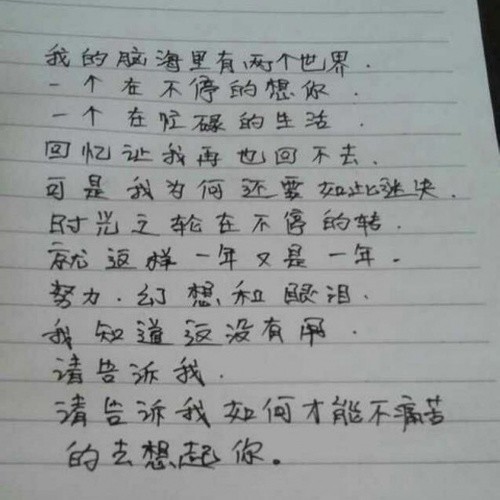 我的脑海里有两个世界.
一个在不停的想你.
一个在忙碌的生活.
回忆让我再也回不去.
可是我为何还要如此迷失.
时光之轮在不停的转.
就这样一年又是一年.
努力.幻想和眼泪.
我知道这没有用.
请告诉我.
请告诉我如何才能不痛苦
的去想起你。